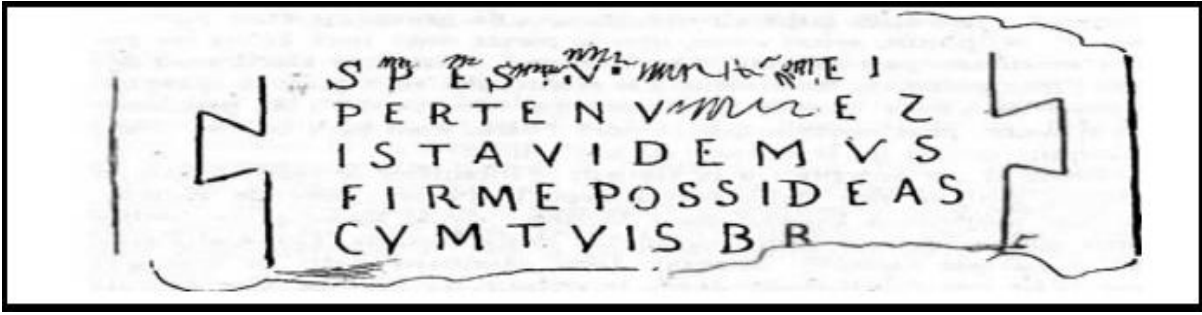 SPES V E I
PERTENV EZ
ISTA VIDEMVS
FIRME POSSIDEAS
CVM TVIS BR